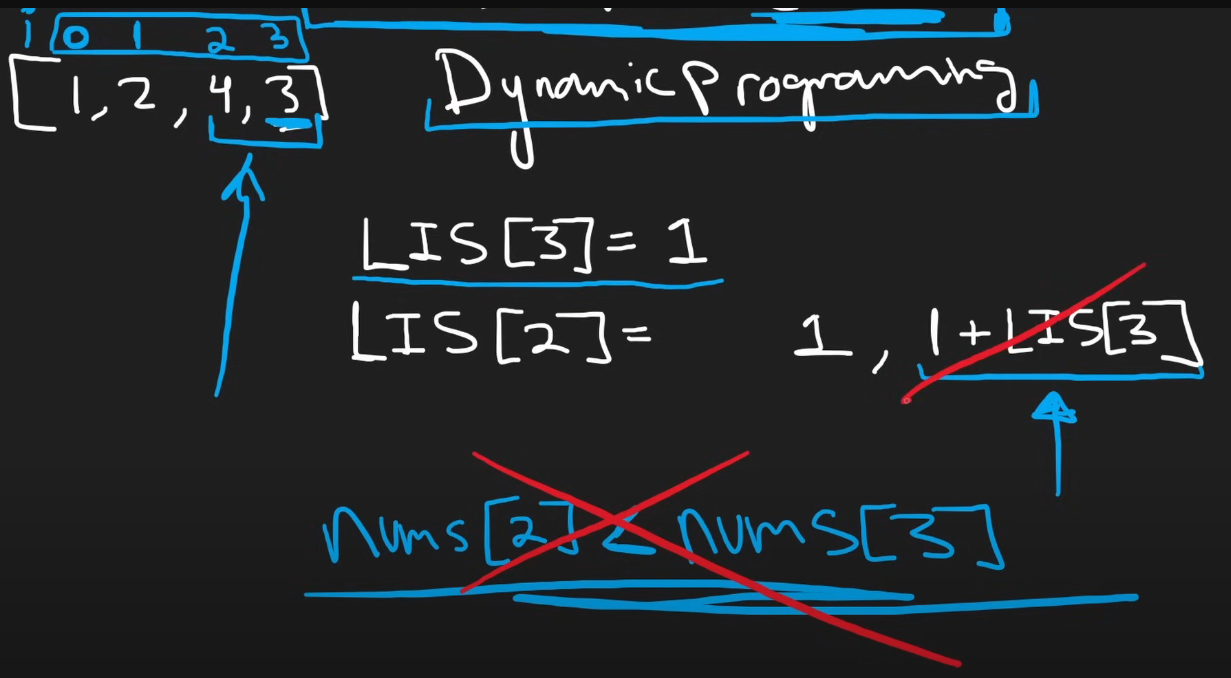 i 0 1 2 3
[1, 2, 4, 3]
Dynamic Programming
LIS[3] = 1
LIS[2] = 1, 1 + LIS[3]
nums[2] < nums[3]